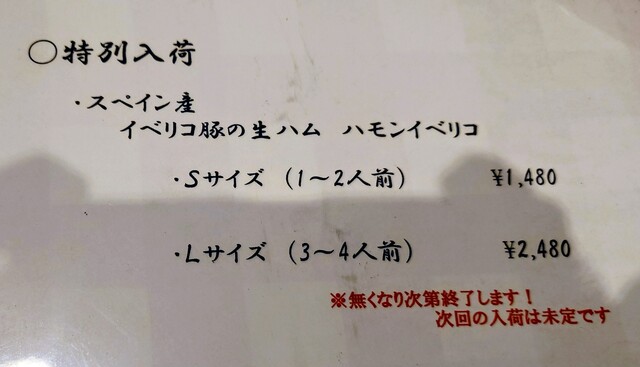 ○特別入荷
・スペイン産
イベリコ豚の生ハム ハモンイベリコ
・Sサイズ (1～2人前) ¥1,480
・Lサイズ (3～4人前) ¥2,480
※無くなり次第終了します!
次回の入荷は未定です